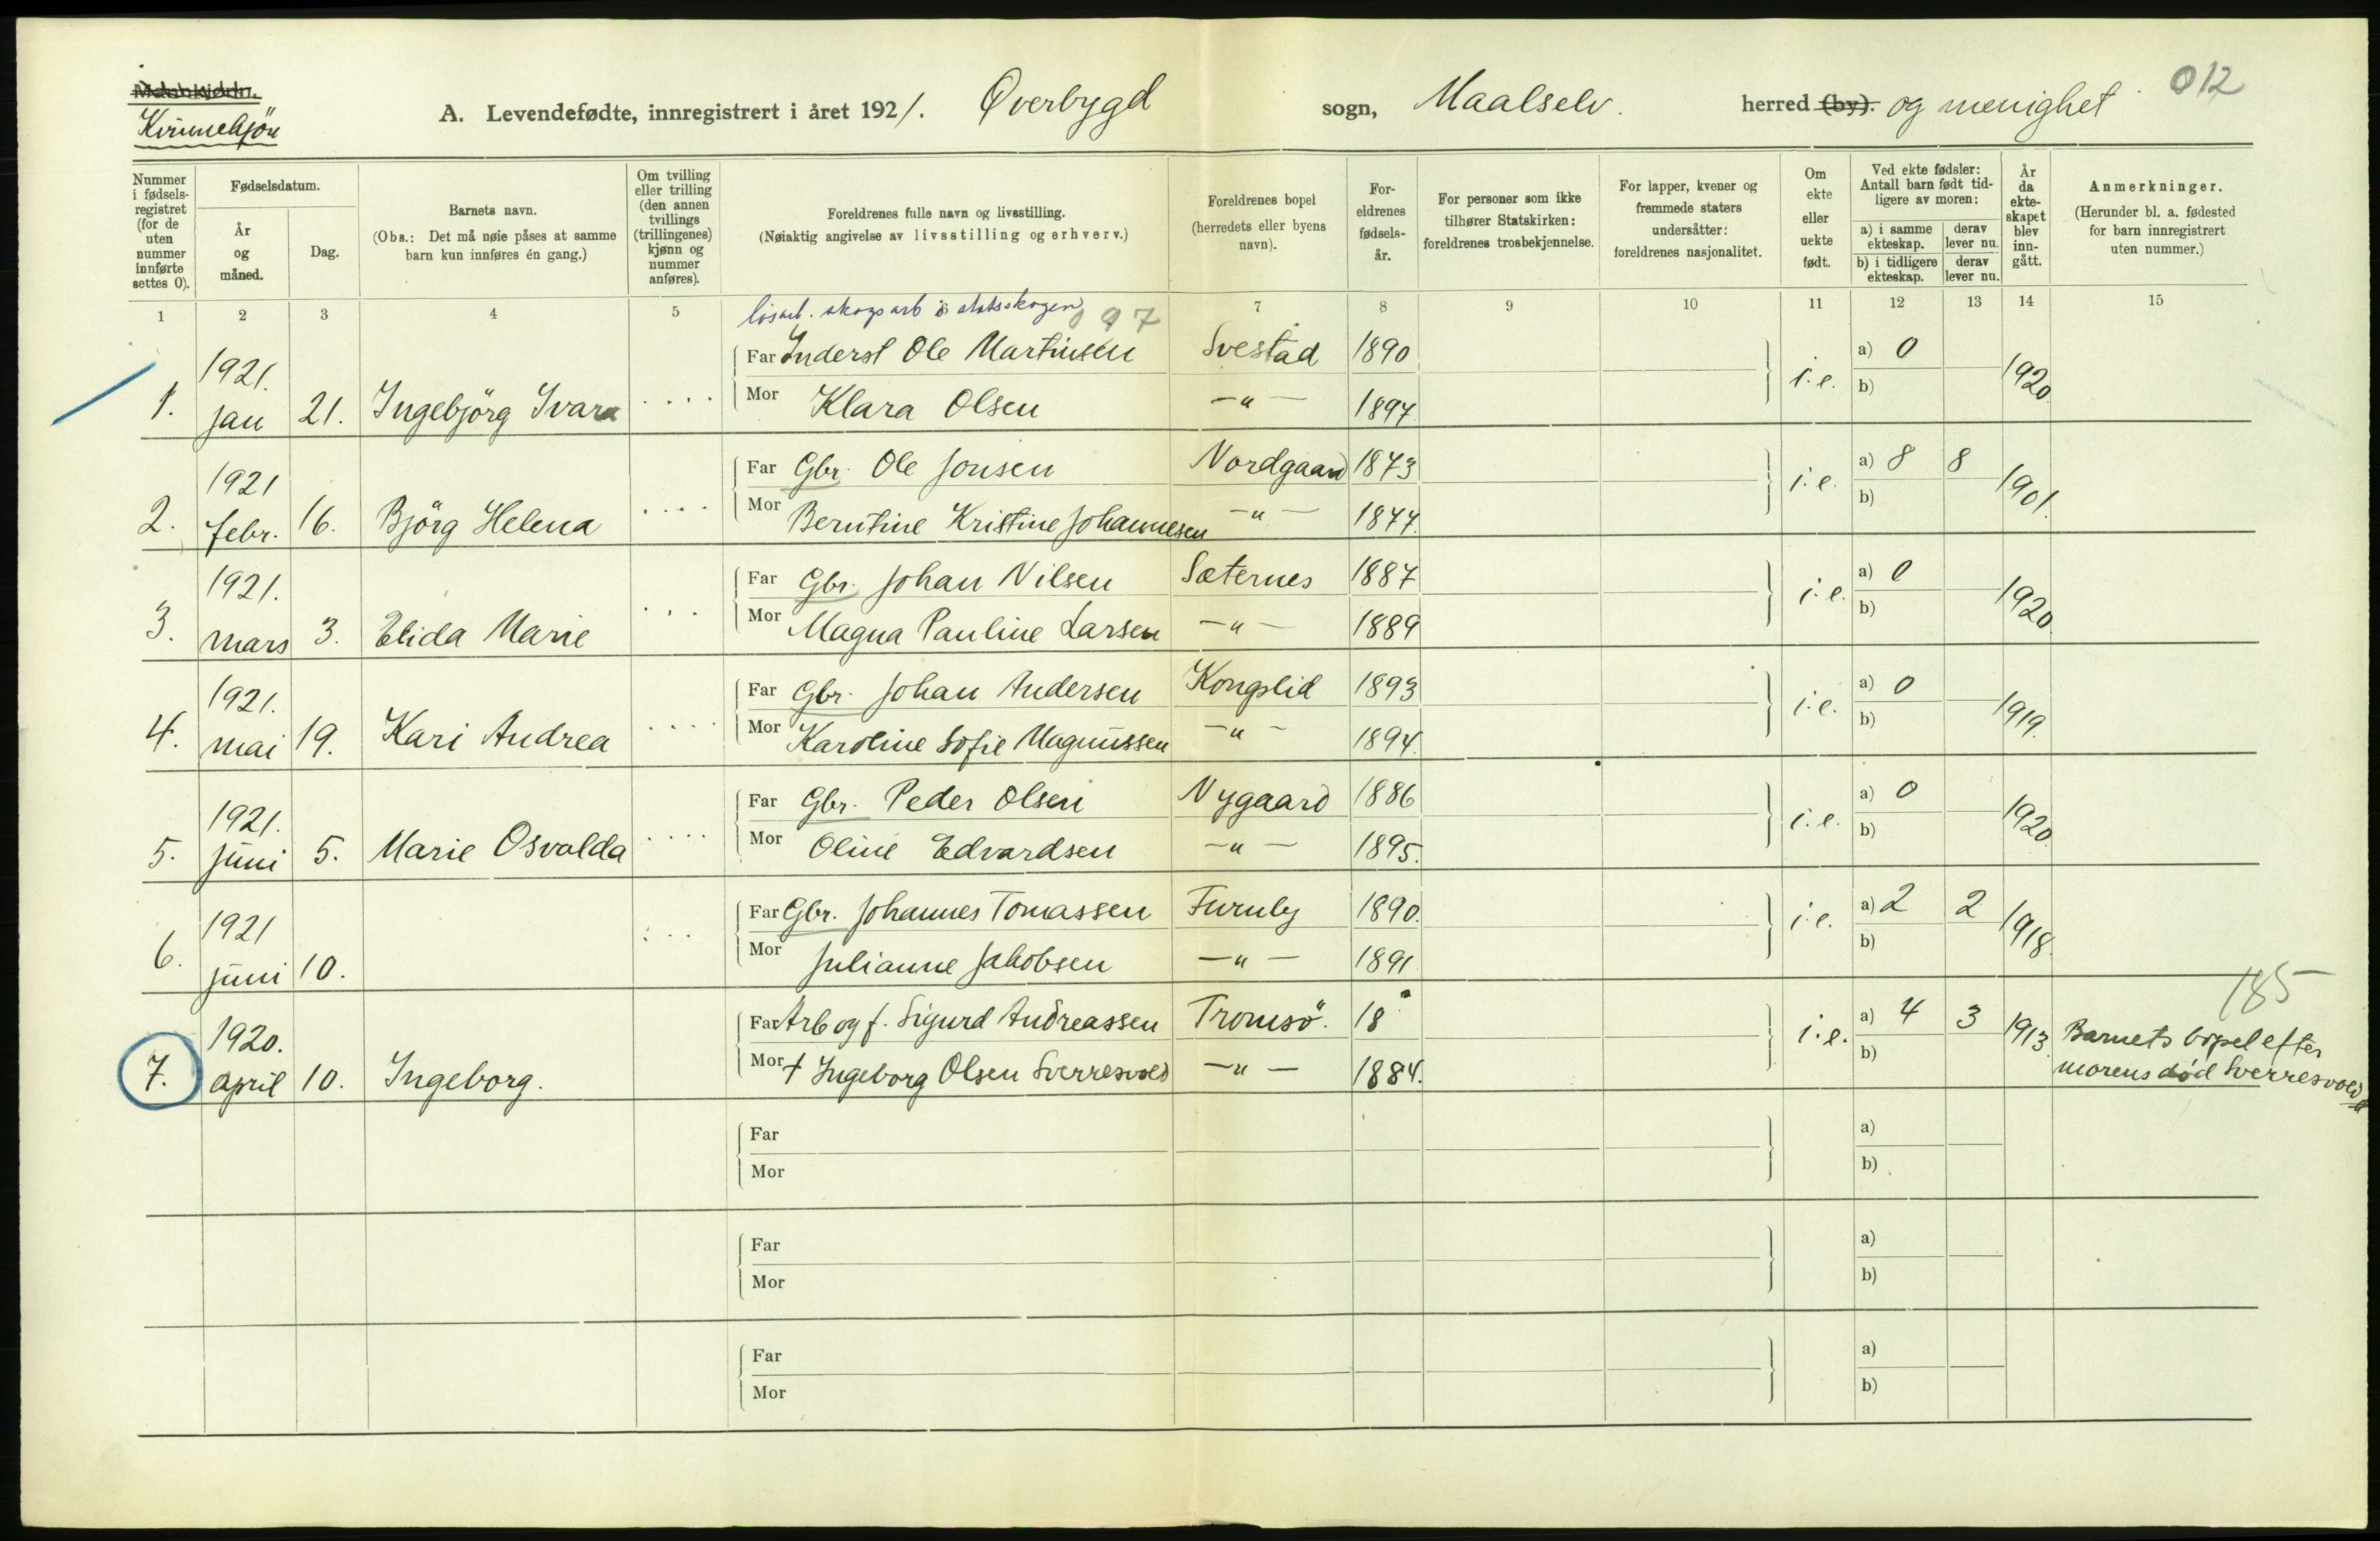 Mandkjøn.
Kvinnekjön
A. Levendefødte, innregistrert i året 1921. Øverbygd sogn, Maalselv. herred (by). og menighet 012
Nummer i fødselsregistret (for de uten nummer innførte settes 0).
Fødselsdatum.
År og måned.
Dag.
Barnets navn.
(Obs.: Det må nøie påses at samme barn kun innføres én gang.)
Om tvilling eller trilling (den annen tvillings (trillingenes) kjønn og nummer anføres).
Foreldrenes fulle navn og livsstilling.
(Nøiaktig angivelse av livsstilling og erhverv.)
Foreldrenes bopel (herredets eller byens navn).
Foreldrenes fødselsår.
For personer som ikke tilhører Statskirken: foreldrenes trosbekjennelse.
For lapper, kvener og fremmede staters undersåtter: foreldrenes nasjonalitet.
Om ekte eller uekte født.
Ved ekte fødsler: Antall barn født tidligere av moren:
a) i samme ekteskap. derav lever nu.
b) i tidligere ekteskap. derav lever nu.
År da ekteskapet blev inngått.
Anmerkninger.
(Herunder bl. a. fødested for barn innregistrert uten nummer.)
1 2 3 4 5 7 8 9 10 11 12 13 14 15
løsarb. skogsarb i statsskogen 097
1. 1921. jan 21. Ingebjörg Ivara . . . .
Far Inderst Ole Martinsen Svestad 1890 i.e. a) 0 1920
Mor Klara Olsen —"— 1897. b)
2. 1921 febr. 16. Björg Helena . . . .
Far Gbr. Ole Jonsen Nordgaard 1873 i.e. a) 8 8 1901.
Mor Berntine Kristine Johannesen —"— 1877. b)
3. 1921. mars 3. Elida Marie . . .
Far Gbr. Johan Nilsen Sæternes 1887 i.e. a) 0 1920.
Mor Magna Pauline Larsen —"— 1889 b)
4. 1921. mai 19. Kari Andrea . . . .
Far Gbr. Johan Andersen Kongslid 1893 i.e. a) 0 1919.
Mor Karoline Sofie Magnussen —"— 1894. b)
5. 1921. juni 5. Marie Osvalda . . . .
Far Gbr. Peder Olsen Nygaard 1886 i.e. a) 0 1920.
Mor Oline Edvardsen —"— 1895. b)
6. 1921 juni 10. . . .
Far Gbr. Johannes Tomassen Furuly 1890. i.e. a) 2 2 1918.
Mor Julianne Jakobsen —"— 1891 b)
185
7. 1920. april 10. Ingeborg.
Far Arb og f. Sigurd Andreassen Tromsö. 18 i.e. a) 4 3 1913. Barnets bopel efter
Mor † Ingeborg Olsen Sverresvold —"— 1884. b) morens død Sverresvold
Far a)
Mor b)
Far a)
Mor b)
Far a)
Mor b)